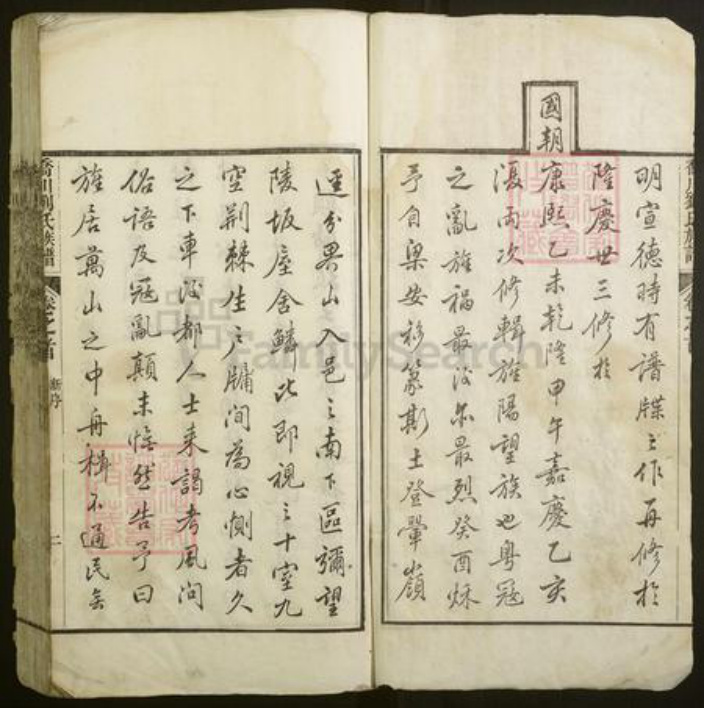 明宣德時有譜牒之作再修於
隆慶世三修於
國朝康熙乙未乾隆甲午嘉慶乙亥
淂兩次修輯旌陽望族也粵冠
之亂旌禍最深亦最烈癸酉秋
予自梁安移篆斯土登翬嶺
逕分界山入邑之南下區彌望
陵坂屋舍鱗比即視之十室九
空荊棘生戶牖間為心惻者久
之下車後都人士来謁考風問
俗語及冠亂顛末愀然告予曰
旌居萬山之中舟楫不通民矣
喬川劉氏族譜
卷之首
新序
二
FamilySearch